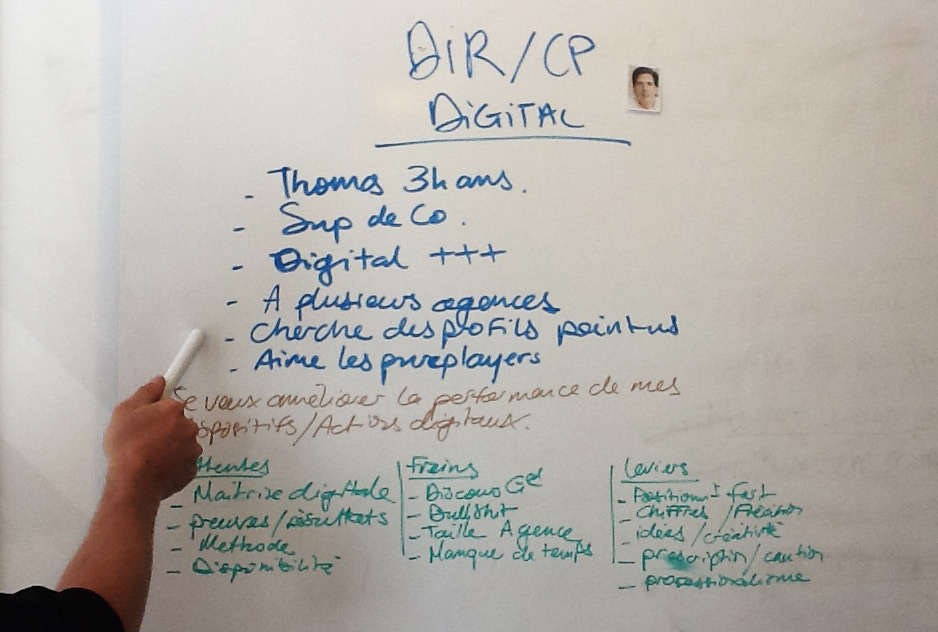 DIR/CP
DIGITAL
- Thomas 34 ans.
- Sup de Co.
- Digital +++
- A plusieurs agences
- Cherche des profils pointus
- Aime les pureplayers
Je veux améliorer la performance de mes
ispositifs/Actions digitaux.
ttentes
- Maîtrise digitale
- preuves/résultats
- Méthode
- Disponibilité
Freins
- Discours Gal
- Bullshit
- Taille Agence
- Manque de temps
Leviers
- Positionnt fast
- Chiffres /
- idées/créativité
- prescription/caution
- professionalisme